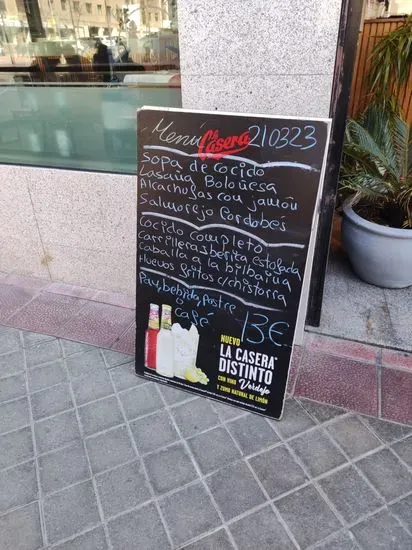 Menú La Casera 210323
Sopa de cocido
Lasaña Boloñesa
Alcachofas con jamón
Salmorejo Cordobés
Cocido completo
Carrilleras berita estofada
Caballa a la bilbaina
Huevos fritos c/chistorra
Pan, bebida, postre
o café 13€
NUEVO
LA CASERA
DISTINTO
CON VINO Verdejo
Y ZUMO NATURAL DE LIMÓN.